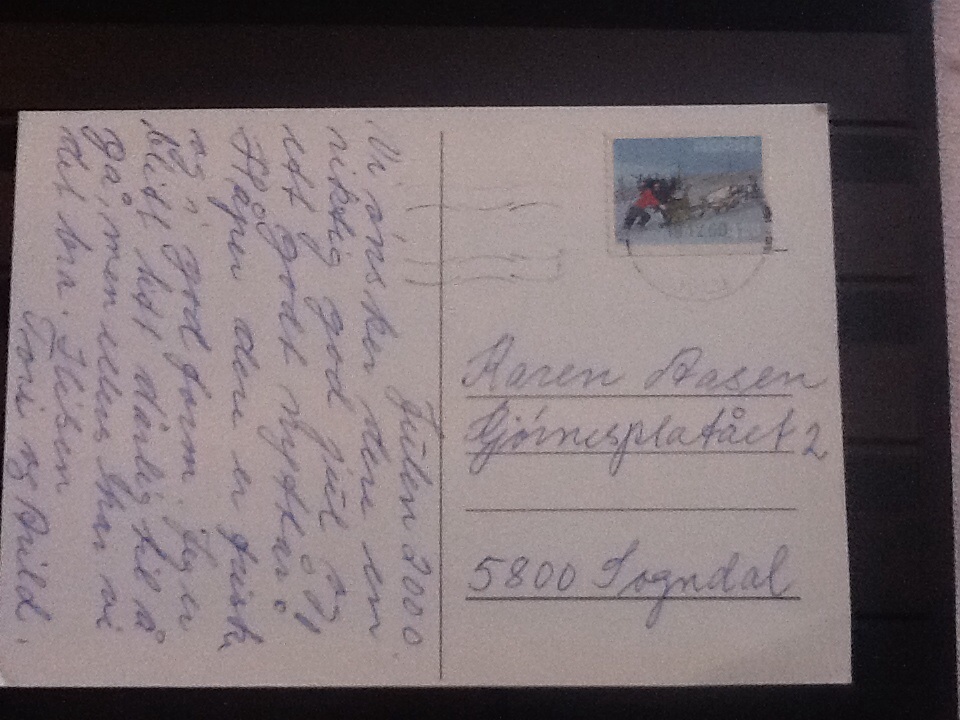 Julen 2000.
Vi ønsker dere en
riktig god jul og
ett godt nyttår
Håper dere er frisk
og i god form. Jeg er
blitt litt dårlig til å
gå, men ellers har vi
det bra. Hilsen
Tori og Arild.
Karen Aasen
Gjørnesplatået 2
5800 Sogndal